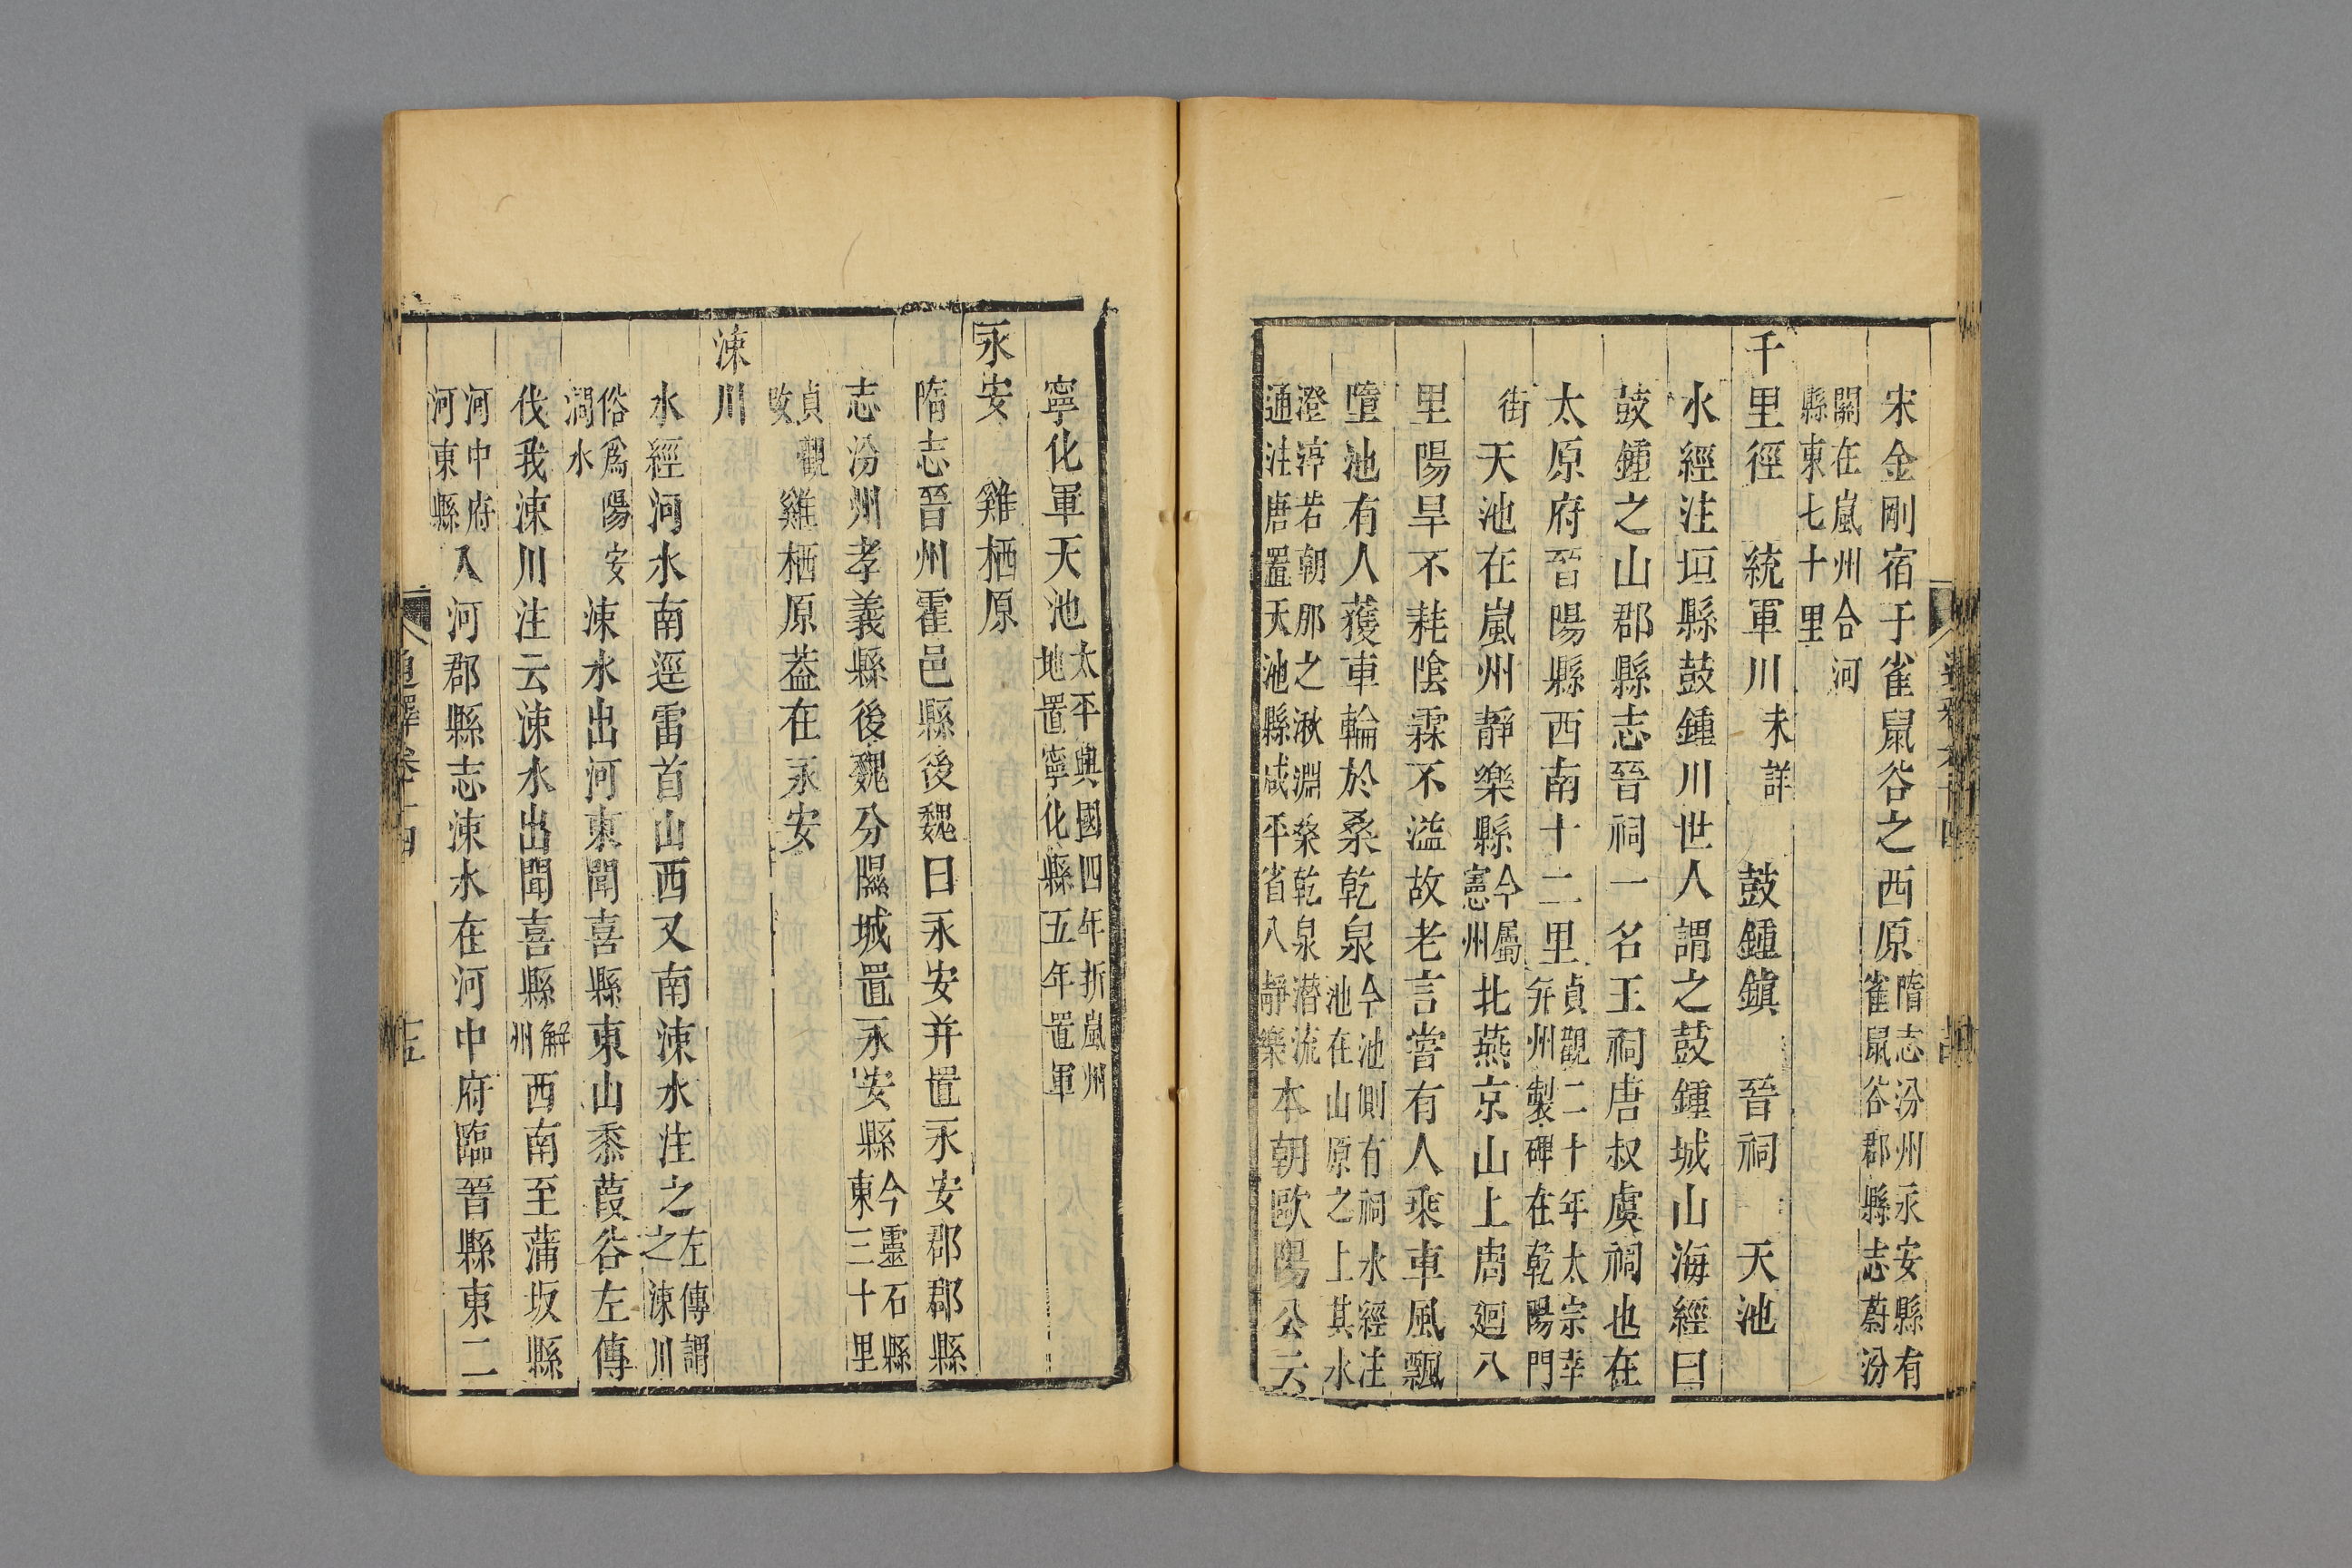 宋金剛宿于雀鼠谷之西原隋志汾州永安縣有雀鼠谷郡縣志蔚汾
關在嵐州合河縣東七十里
千里徑　統軍川未詳　鼓鍾鎮　晉祠　天池
水經注垣縣鼓鍾川世人謂之鼓鍾城山海經曰
鼓鍾之山郡縣志晉祠一名王祠唐叔虞祠也在
太原府晉陽縣西南十二里貞觀二十年太宗幸并州製碑在乾陽門
街天池在嵐州靜樂縣今屬憲州北燕京山上周迴八
里陽旱不耗陰霖不溢故老言嘗有人乘車風飄
墮池有人獲車輪於桑乾泉今池側有祠水經注池在山原之上其水
澄渟若朝那之湫淵桑乾泉潛流通注唐置天池縣咸平省入靜樂本朝歐陽公云
寧化軍天池太平興國四年折嵐州地置寧化縣五年置軍
永安　雞栖原
隋志晉州霍邑縣後魏曰永安并置永安郡郡縣
志汾州孝義縣後魏分隰城置永安縣今靈石縣東三十里
貞觀改雞栖原葢在永安
涑川
水經河水南逕雷首山西又南涑水注之左傳謂之涑川
俗爲陽安澗水涑水出河東聞喜縣東山黍葭谷左傳
伐我涑川注云涑水出聞喜縣解州西南至蒲坂縣
河中府河東縣入河郡縣志涑水在河中府臨晉縣東二